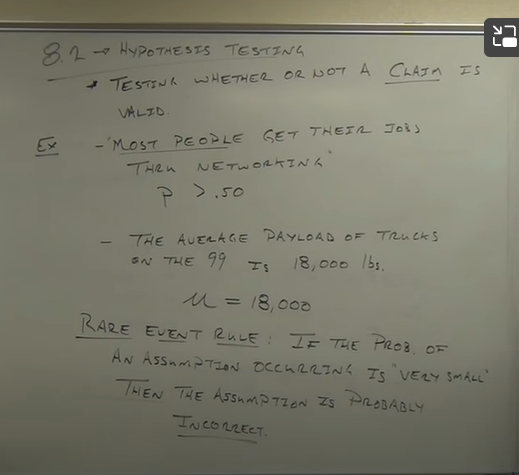 8.2 → HYPOTHESIS TESTING
* TESTING WHETHER OR NOT A CLAIM IS
VALID.
Ex - "MOST PEOPLE GET THEIR JOBS
THRU NETWORKING"
P > .50
- THE AVERAGE PAYLOAD OF TRUCKS
ON THE 99 IS 18,000 lbs.
μ = 18,000
RARE EVENT RULE: IF THE PROB. OF
AN ASSUMPTION OCCURRING IS "VERY SMALL"
THEN THE ASSUMPTION IS PROBABLY
INCORRECT.